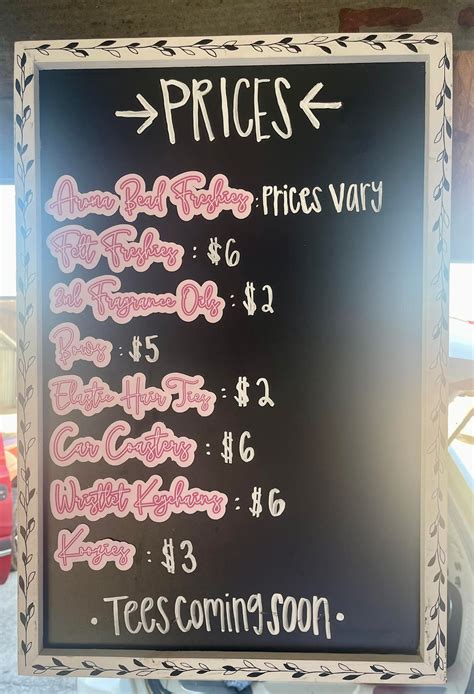 →PRICES←
Aroma Bead Freshies: Prices Vary
Felt Freshies : $6
2ml Fragrance Oils : $2
Bows : $5
Elaztic Hair Ties : $2
Car Coasters : $6
Wristlet Keychains : $6
Koozies : $3
· Tees coming soon ·